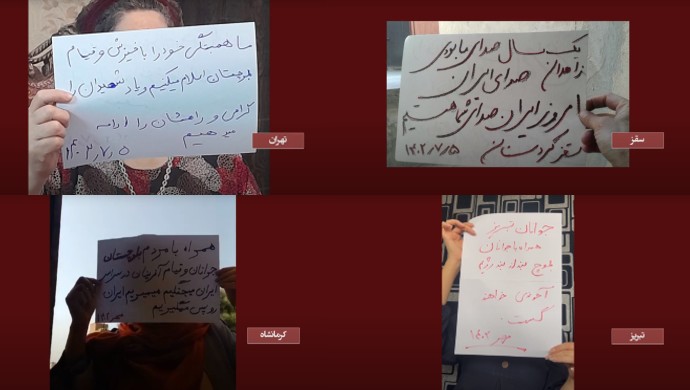 ما همبستگی خود را با خیزش و قیام
بلوچستان اعلام میکنیم و یاد شهیدان را
گرامی و راهشان را ادامه
می دهیم
۱۴۰۲/۷/۵
تهران
یک سال صدای ما بودی
زاهدان صدای ایران
امروز ایران صدای شما هستیم
سقز کردستان ۱۴۰۲/۷/۵
سقز
همواره با مردم بلوچستان
جوانان و قیام آفرینان در سراسر
ایران میجنگیم میمیریم ایران
رو پس میگیریم
مهر
کرمانشاه
جوانان تبریز
همراه با جوانان
بلوچ بند از بند رژیم
آخوندی خواهند
گسست
مهر ۱۴۰۲
تبریز